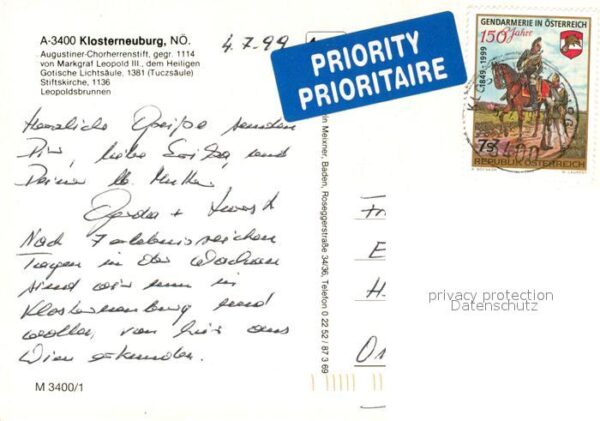 A-3400 Klosterneuburg, NÖ.
Augustiner-Chorherrenstift, gegr. 1114
von Markgraf Leopold III., dem Heiligen
Gotische Lichtsäule, 1381 (Tuczsäule)
Stiftskirche, 1136
Leopoldsbrunnen
4.7.99
PRIORITY
PRIORITAIRE
GENDARMERIE IN ÖSTERREICH
150 Jahre
1849-1999
7S
REPUBLIK ÖSTERREICH
Herzliche Grüße senden
Dir, liebe und
Deiner lb. Mutter
Gerda +
Nach 7 erlebnisreichen
Tagen in der Wachau
sind wir nun in
Klosterneuburg und
wollen von hier aus
Wien erkunden.
M 3400/1
Meixner, Baden, Roseggerstraße 34/36, Telefon 0 22 52 / 87 3 69
privacy protection
Datenschutz